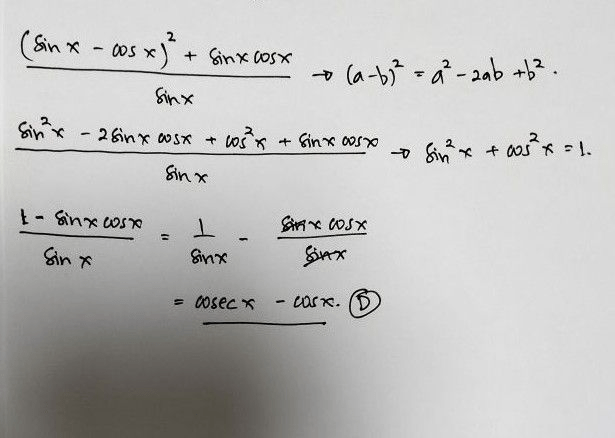 (sin x - cos x)² + sin x cos x / sin x → (a-b)² = a² - 2ab + b².
sin²x - 2 sin x cos x + cos²x + sin x cos x / sin x → sin²x + cos²x = 1.
1 - sin x cos x / sin x = 1 / sin x - sin x cos x / sin x
= cosec x - cos x. (D)